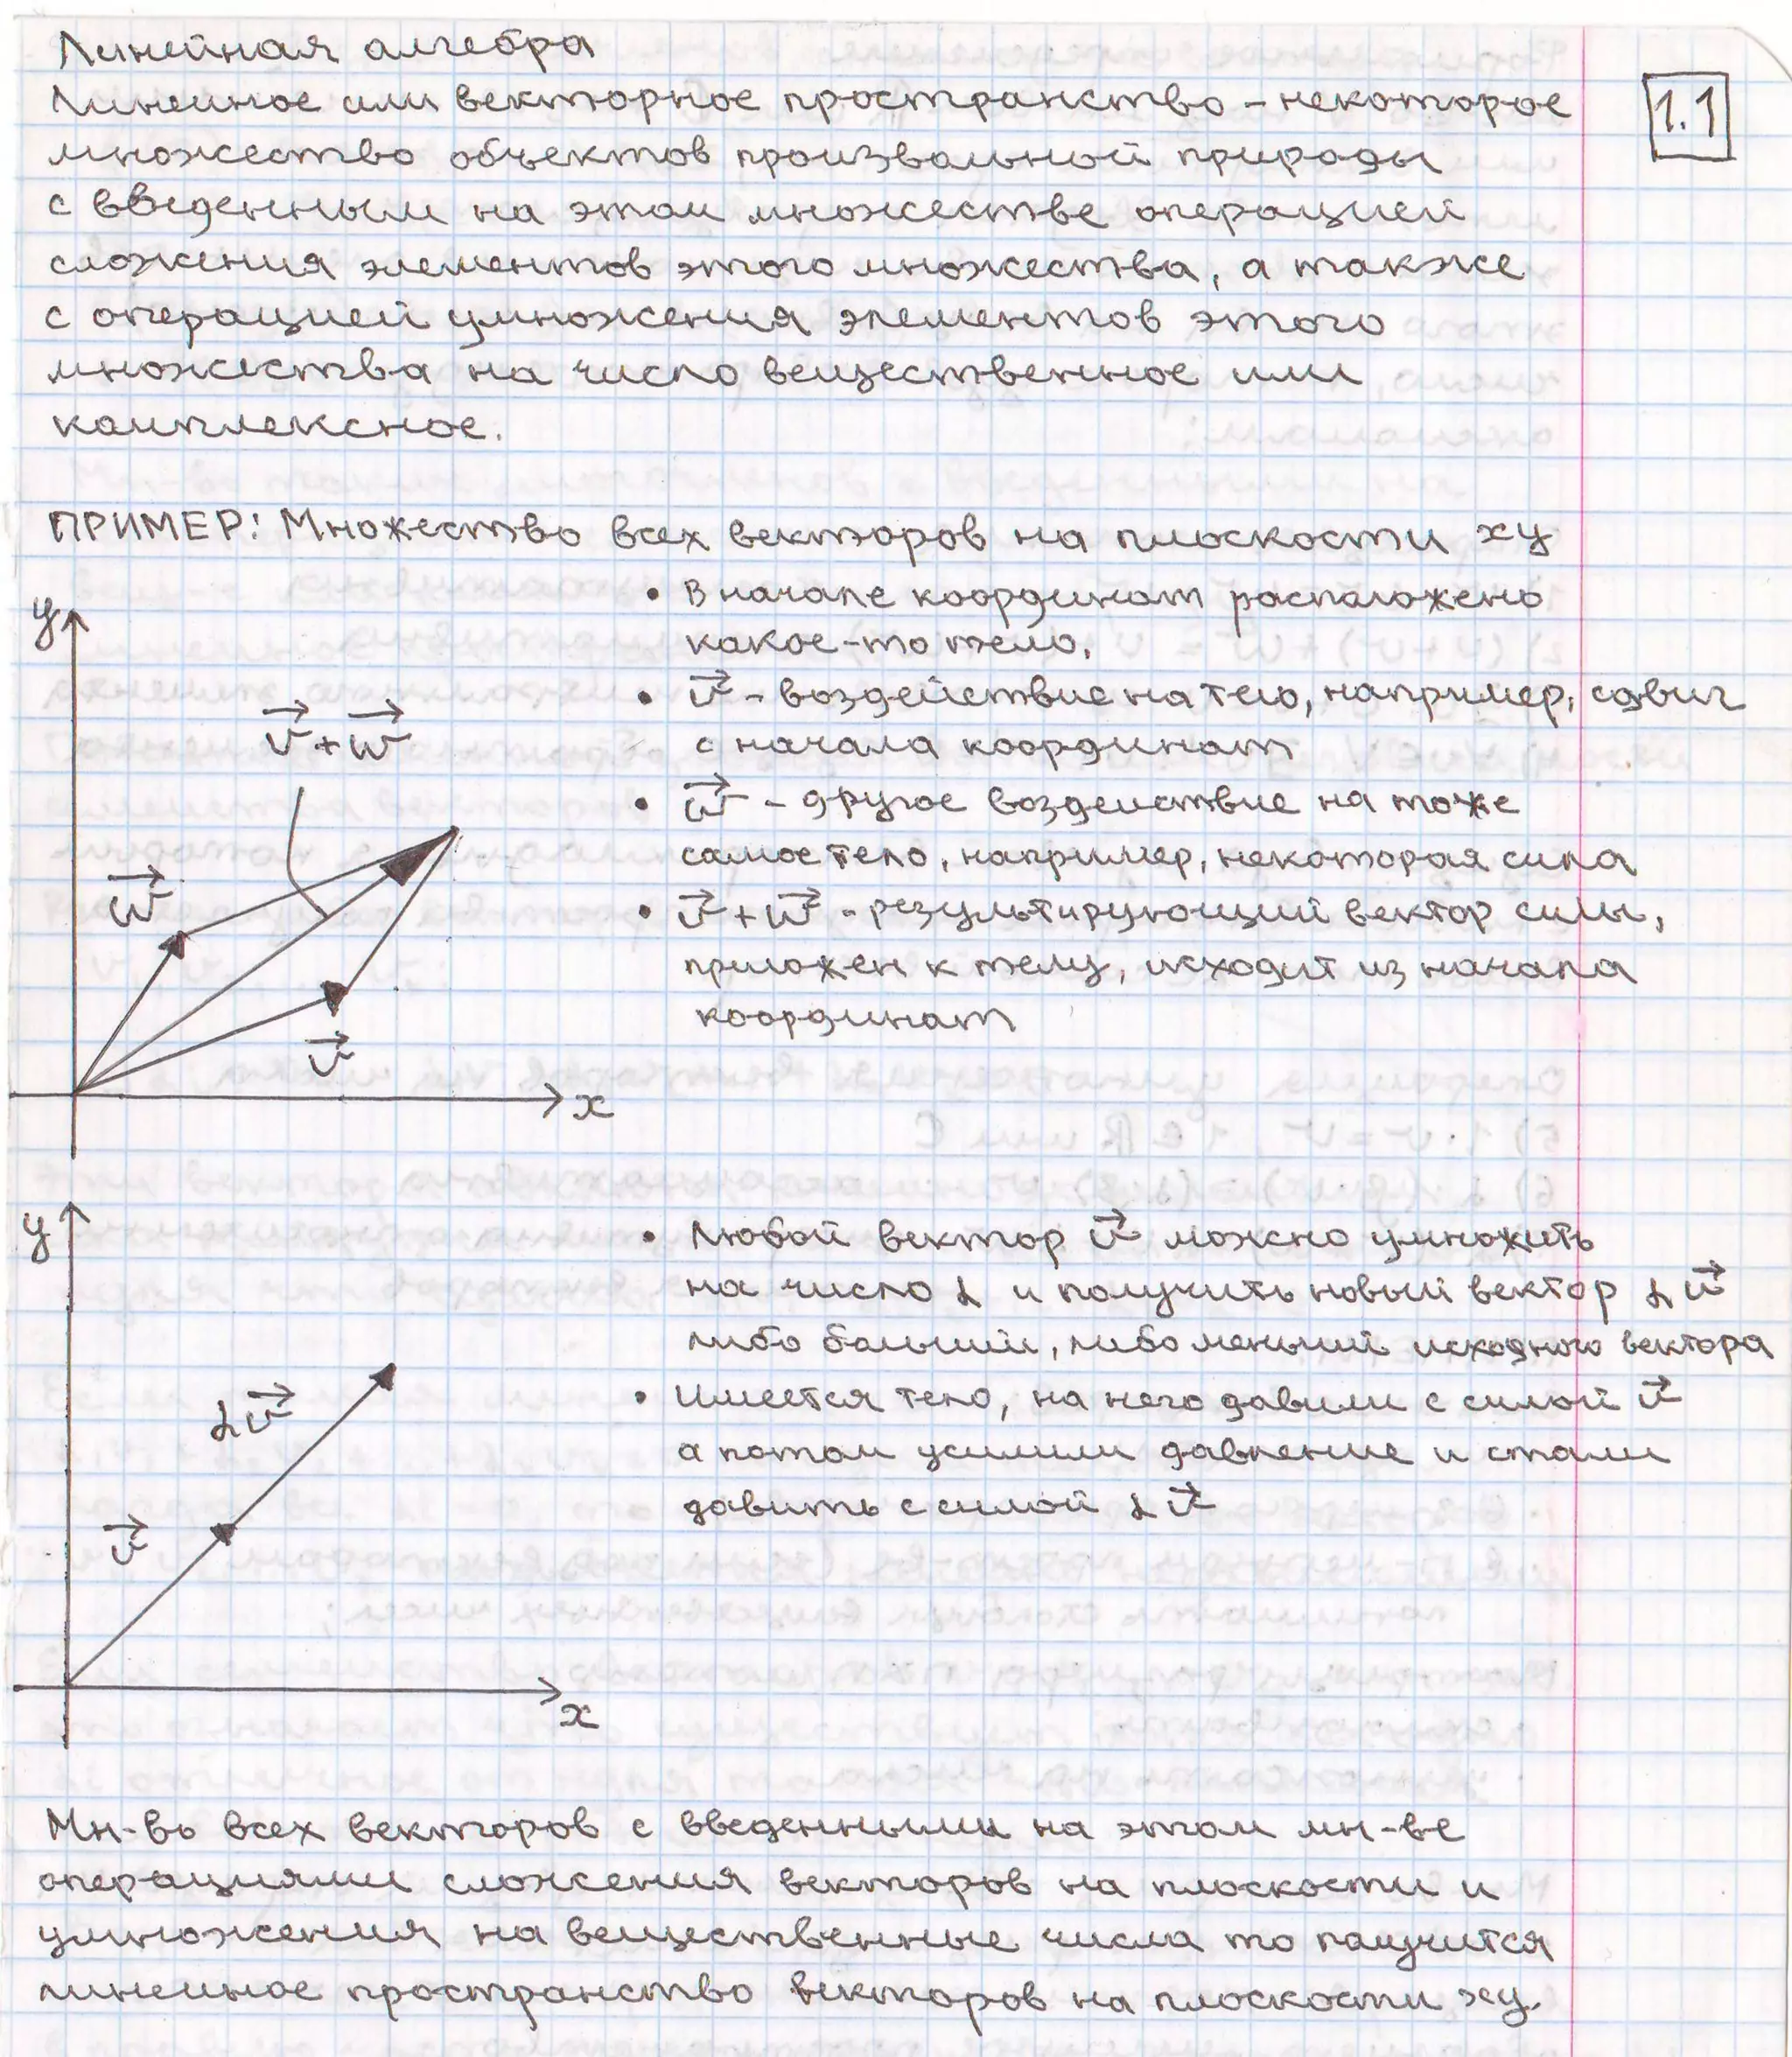 Линейная алгебра
1.1
Линейное или векторное пространство - некоторое
множество объектов произвольной природы
с введенным на этом множестве операцией
сложения элементов этого множества, а также
с операцией умножения элементов этого
множества на число вещественное или
комплексное.
ПРИМЕР: Множество всех векторов на плоскости xy
• В начале координат расположено
какое-то тело,
• v⃗ - воздействие на тело, например, сдвиг
с начала координат
• w⃗ - другое воздействие на тоже
самое тело, например, некоторая сила
• v⃗ + w⃗ - результирующий вектор силы,
приложен к телу, исходит из начала
координат
y
v⃗ + w⃗
w⃗
v⃗
x
• Любой вектор v⃗ можно умножить
на число α и получить новый вектор αv⃗
либо больший, либо меньший исходного вектора
• Имеется тело, на него давили с силой v⃗
а потом усилили давление и стали
давить с силой αv⃗
y
αv⃗
v⃗
x
Мн-во всех векторов с введенными на этом мн-ве
операциями сложения векторов на плоскости и
умножения на вещественные числа то получится
линейное пространство векторов на плоскости xy.